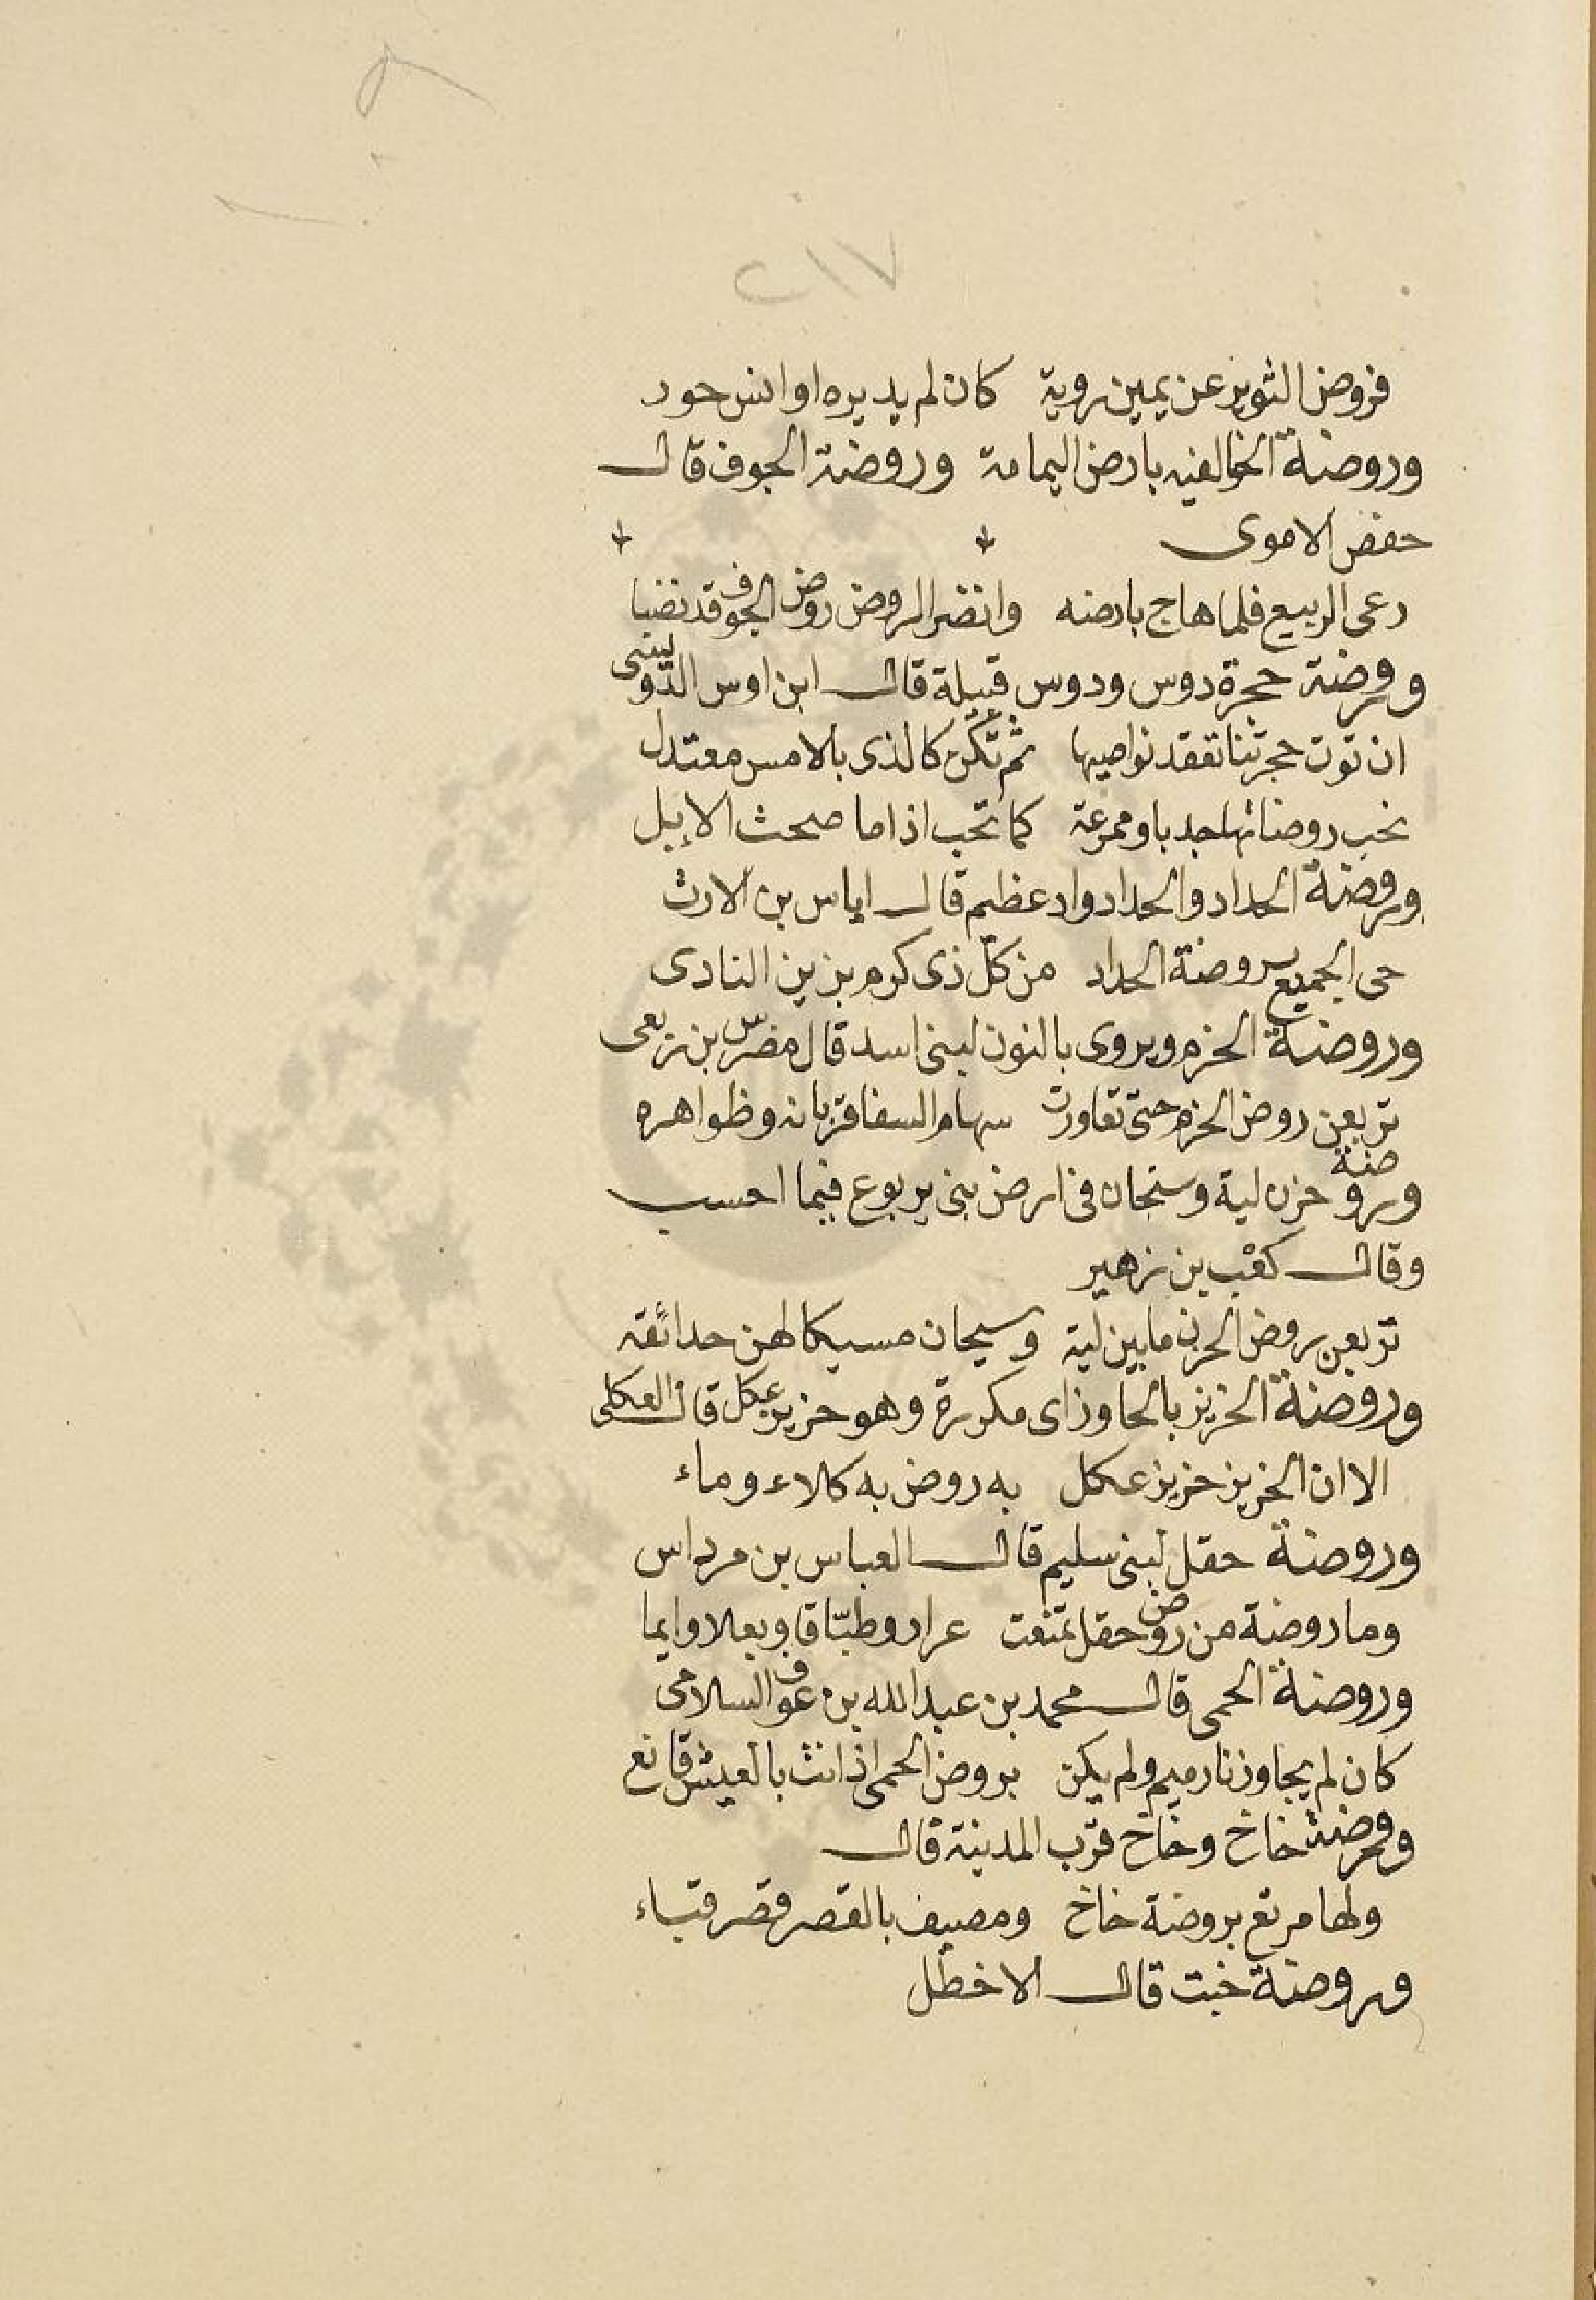 ٢١٧
فروض الثوير عن يمين روية كان لم يديره اوانس حور
وروضة الخالفيه بارض اليمامة وروضة الجوف قال
حفص الاموى
رعى الربيع فلما هاج بارضه وانضر الروض روض الجوف قد نضبا
وروضة حجرة دوس ودوس قبيلة قال ابن اوس الدوسى
ان توت حجرتنا تفقد نواصيها ثم تكن كالذى بالامس معتدل
نحب روضاتها جدبا وممرعة كما تحب اذا ما صحت الإبل
وروضة الحداد والحداد واد عظيم قال اياس بن الارث
حى الجميع بروضة الحداد من كلّ ذى كرم يزين النادى
وروضة الحزم ويروى بالنون لبنى اسد قال مضرّس بن ربعى
تربعن روض الحزم حتى تعاورت سهام السفا قربانه وظواهره
وروضة حزن لية وسنجان فى ارض بنى يربوع فيما احسب
وقال كعب بن زهير
تربعن روض الحزن ما بين لية وسيحان مسيكا لهن حدائقه
وروضة الحزيز بالحا وزاى مكررة وهو حزيز عكل قال العكلى
الا ان الحزيز حزيز عكل به روض به كلاء وماء
وروضة حقل لبنى سليم قال العباس بن مرداس
وما روضة من روض حقل تمتعت عرارا وطبّاقا وبعلا وايما
وروضة الحمى قال محمد بن عبد الله بن عوف السلامى
كان لم يجاوزنا رميم ولم يكن بروض الحمى اذ انت بالعيش قانع
وروضة خاخ وخاخ قرب المدينة قال
ولها مربع بروضة خاخ ومصيف بالقصر قصر قباء
وروضة خبت قال الاخطل